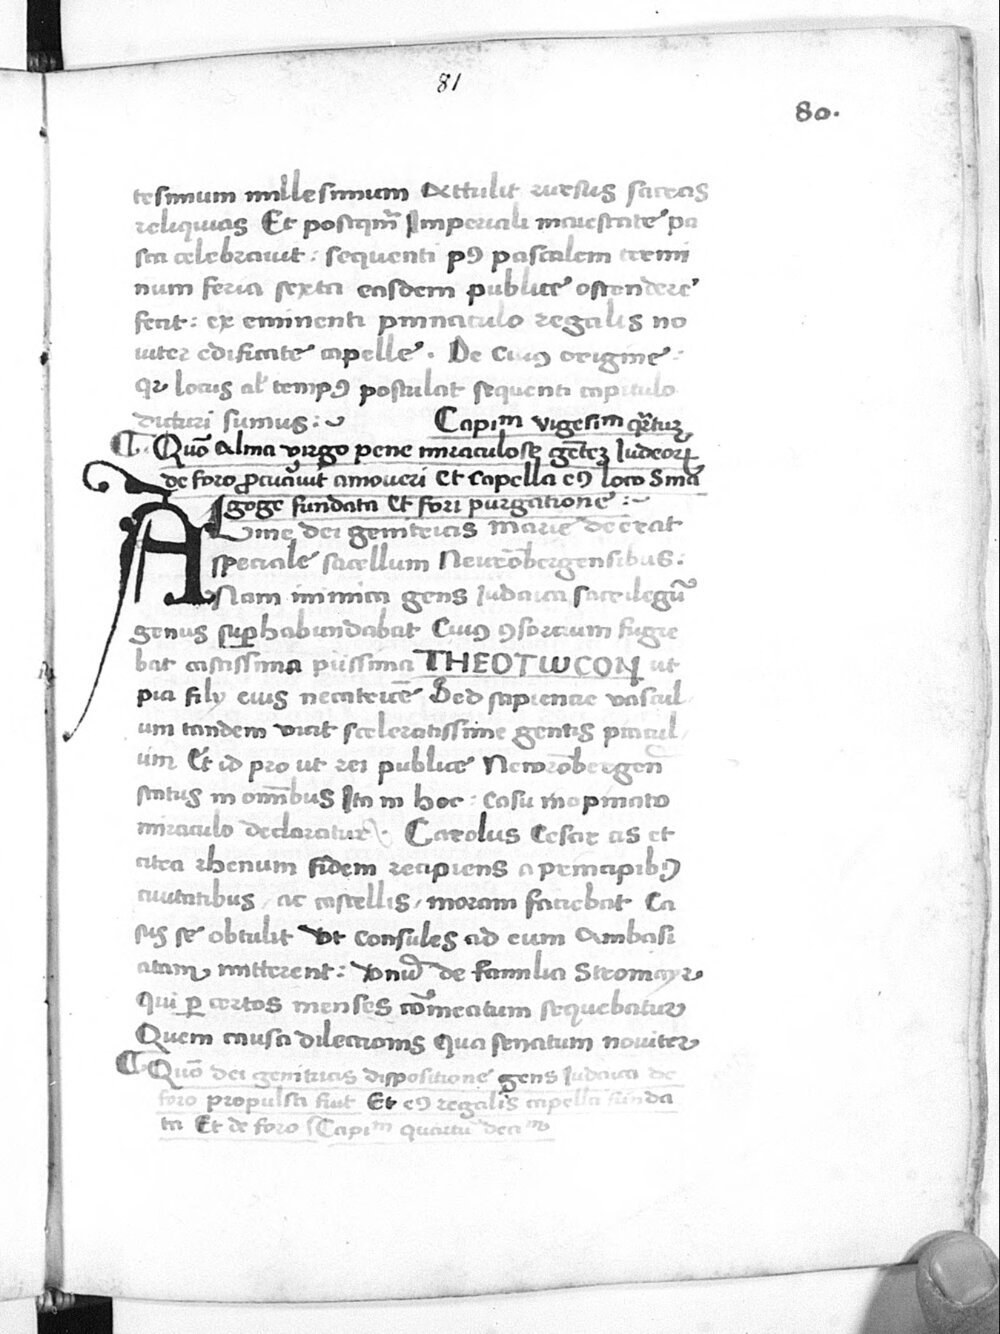 81
80.
tesimum millesimum Attulit rursus sacras
reliquias Et postqm̄ Imperiali maiestate pa
sca celebrauit : sequenti pꝰ pascalem termi
num feria sexta easdem publice ostendere
fecit : ex eminenti pinnaculo regalis no
uiter edificate capelle . De cuiꝰ origine :
qr locus al' tempꝰ postulat sequenti capitulo
dicturi sumus :
Capim vigesim qrtuꝫ
Quō Alma virgo pene miraculose gētēꝫ Iudeoꝝ
de foro ꝓcuꝛauit amoueri Et capella eiꝰ loco Sina
goge fundata Et fori purgatione :
Alme dei genitricis Marie deerat
speciale sacellum Neurōbergensibus :
Nam inimica gens Iudaica sacrilegū
genus suꝑhabundabat Cuiꝰ ꝯsorcium fugie
bat castissima piissima THEOTWCON ut
pia filij eius necatricē Sed sapiencie vascul
um tandem vicit sceleratissime gentis piacul
um Et id pro ut rei publice Newrōbergen̄
status in om̄ibus Ita in hoc : casu inopinato
miraculo declaratur . Carolus Cesar cis et
citra rhenum fidem recipiens a principibꝰ
ciuitatibus / ac castellis / moram faciebat Ca
sus se obtulit vt consules ad eum Ambasi
atam mitterent : vnū de familia Stromayr
qui ꝑ certos menses cōmeatum sequebatur
Quem causa dilectionis Qua senatum nouiter
Quō dei genitricis dispositione gens Iudaica de
foro propulsa fuit Et eiꝰ regalis capella funda
ta Et de foro Capim quartū decim